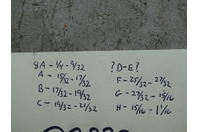 8A - 1/4 - 9/32
A - 15/32 - 17/32
B - 17/32 - 19/32
C - 19/32 - 21/32
? D-E ?
F - 25/32 - 27/32
G - 27/32 - 15/16
H - 15/16 - 1 1/16